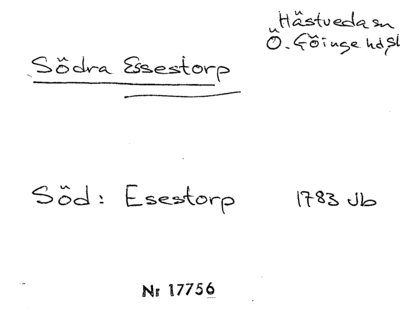 Hästveda sn
Ö. Göinge hd
Södra Esestorp
Söd: Esestorp 1783 Jb
Nr 17756